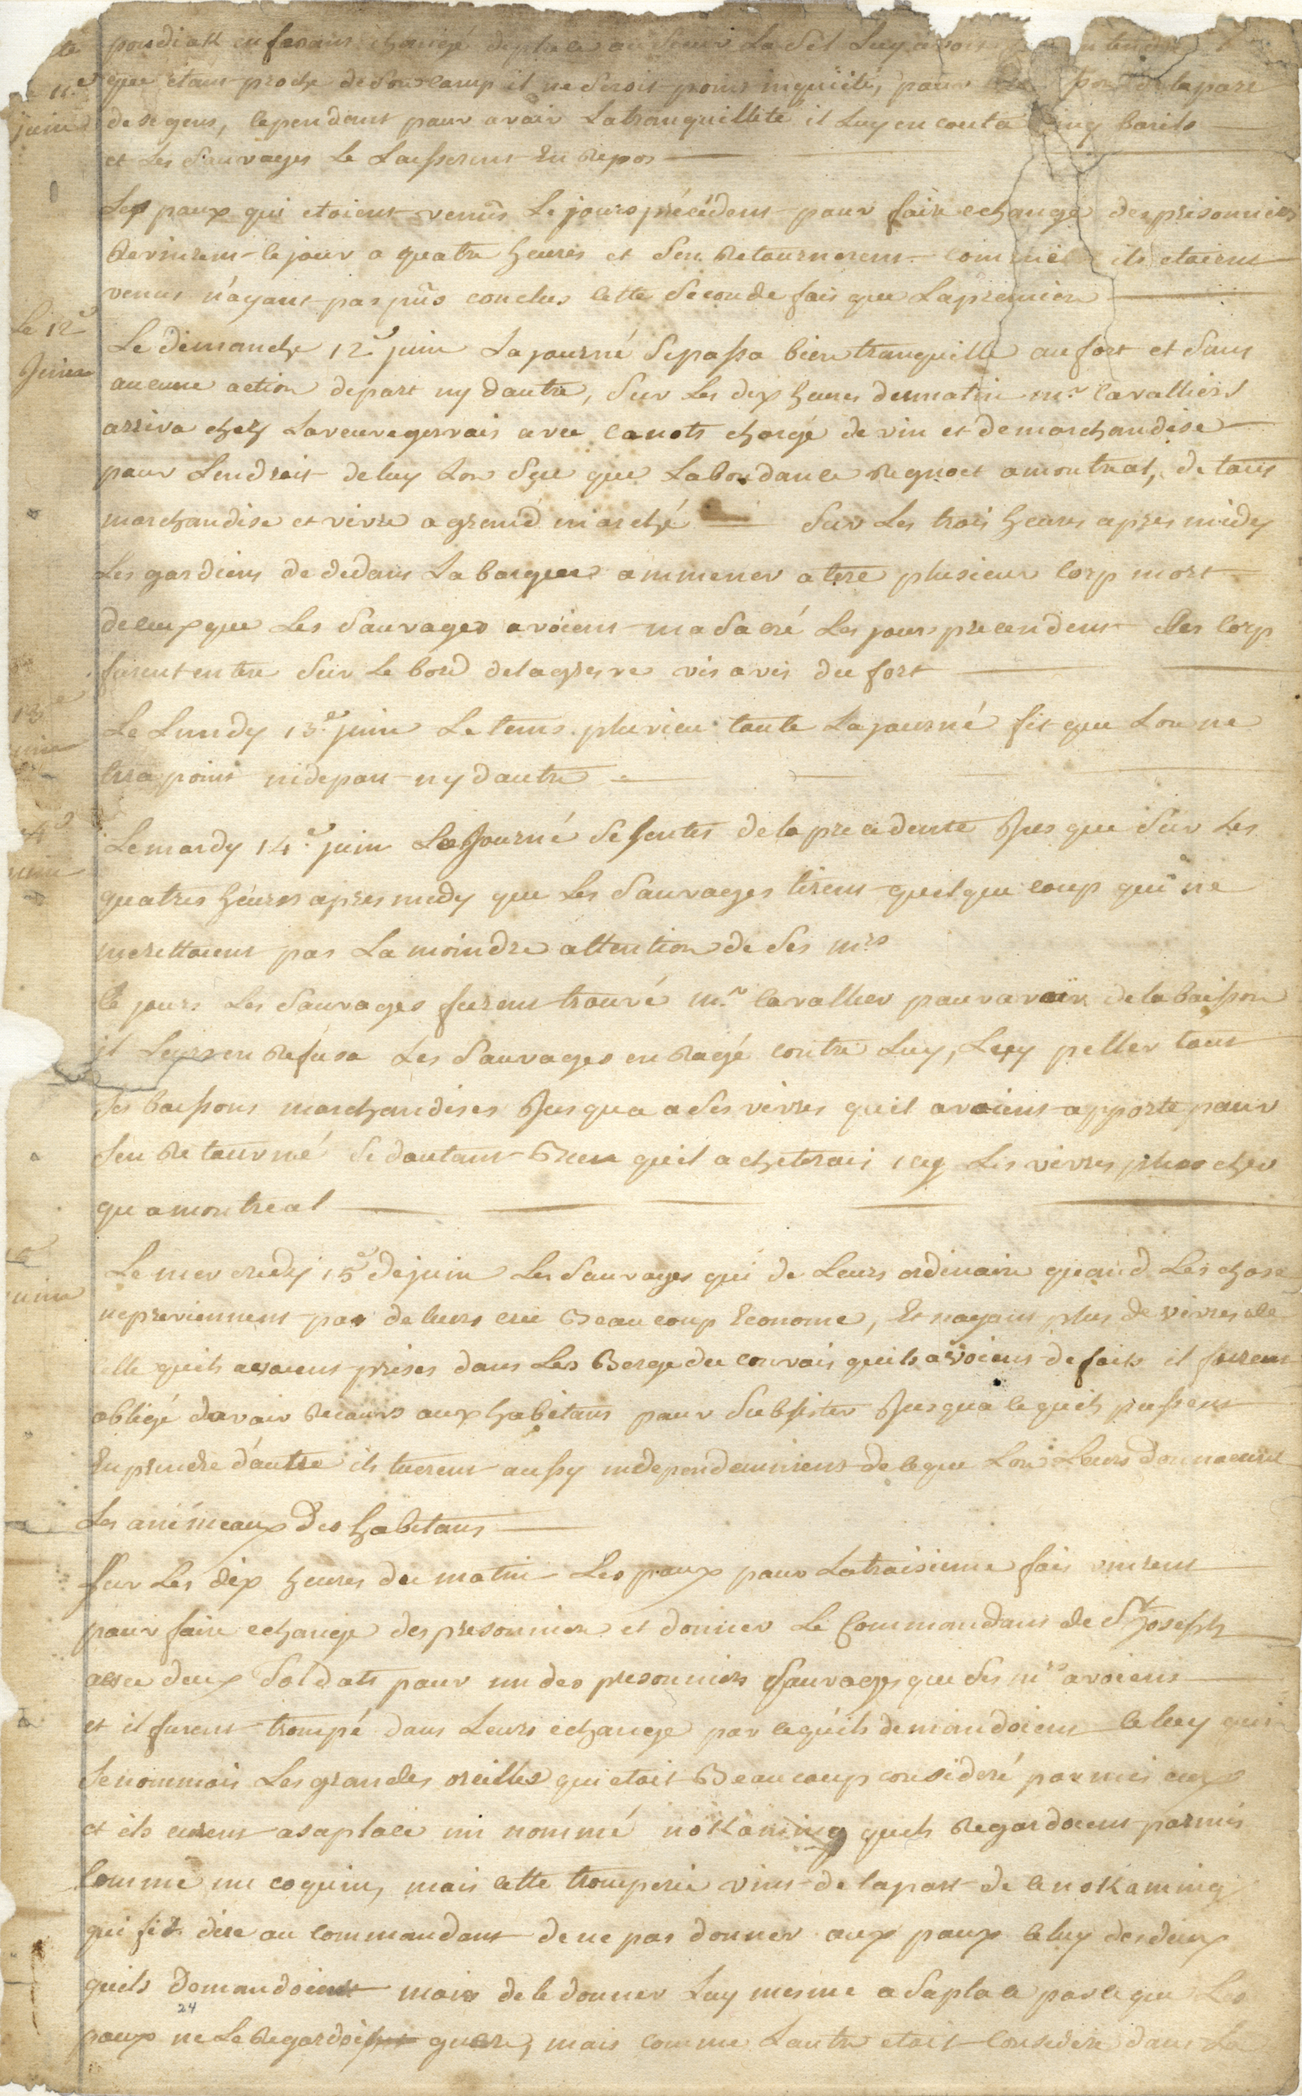 pondiak en faisans changé de place au Sieur La Sel Luy avoit
que etant proche de Son camp il ne Seroit point inquiété, pour de la part
de Se gens, Cependant pour avoir La tranquillité il Luy en couta Cinq barils
et Les Sauvages Le Laisserent En Repos
Les poux qui etoient venûs Le jours précédent pour faire echange des prisonniers
Revinrent ce jour a quatre heures et Sen Retournerent comme ils etoient
venus n'ayant pas pûs conclus cette Seconde fois que La premiere
Le 12e
Juin
Le dimanche 12e juin La journé Se passa bien tranquille au fort et Sans
aucune action de part ny dautre, Sur Les dix heures du matin mr. Cavalliers
arriva chez La veuve gervais avec canots chargé de vin et de marchandise
pour Lendroit de luy Lon Sçu que Labondance Regnoit a montreal, de tous
marchandise et vivre a grand marché Sur Les trois heures apres midy
Les gardiens de dedans La barque ammener a tere plusieur Corp mort
de ceux que Les Sauvages avoient masacré Les jours precendent Les Corp
furent entere Sur Le bord de la greve vis a vis du fort
13e
juin
Le Lundy 13e juin Le tems pluvieu toute La journé fit que Lon ne
tira point ni de part ny dautre
14e
juin
Le mardy 14e juin La Journé Se Sentit de la precedente Jusque Sur Les
quatres heures apres midy que Les Sauvages tirent quelque coup qui ne
merittoient pas La moindre attention de Ses mrs
Ce jours Les Sauvages furent trouvé mr. Cavallier pour avoir de la boisson
il Leurs en Refusa Les Sauvages en Ragé contre Luy, Luy piller tout
Ses boissons marchandises Jusqua a Ses vivres quil avoient apporté pour
Sen Retourné Se doutant Bien quil acheterai icy Les vivres plus cher
qu a montreal
15e
juin
Le mercredy 15e de juin Les Sauvages qui de Leurs ordinaire quand Les chose
ne previennent pas de leurs cru Beaucoup Econome, Et nayant plus de vivres de
Celle quils avoient prises dans Les Berge du convois quils avoient defaits il furent
obligé davoir Recours aux habitans pour Subsister Jusqua ce quils pussent
En prendre dautre ils tuerent aussy independamment de ce que Lon Leurs donnoient
Les animeaux des habitans
Sur Les dix heures du matin Les poux pour La troisieme fois vinrent
pour faire echange des prisonniers et donner Le Commandant de St Joseph
avec deux Soldats pour un des prisonniers Sauvages que Ses mrs avoient
et il furent trompé dans Leurs echange par ce quils demandoient Celuy qui
Se nommois Les grandes oreilles qui etoit Beaucoup considéré parmis eux
et ils eurent a sa place un nommé nokaming quils Regardoient parmis
Comme un coquin, mais cette tromperie vint de la part de ce nokaming
qui fit dire au commandant de ne pas donner aux poux Celuy des deux
quils Demandoient mais de le donner Luy mesme a Sa place par ce que Les
24
poux ne Le Regardoient guere, mais comme Lautre etoit Consideré dans La